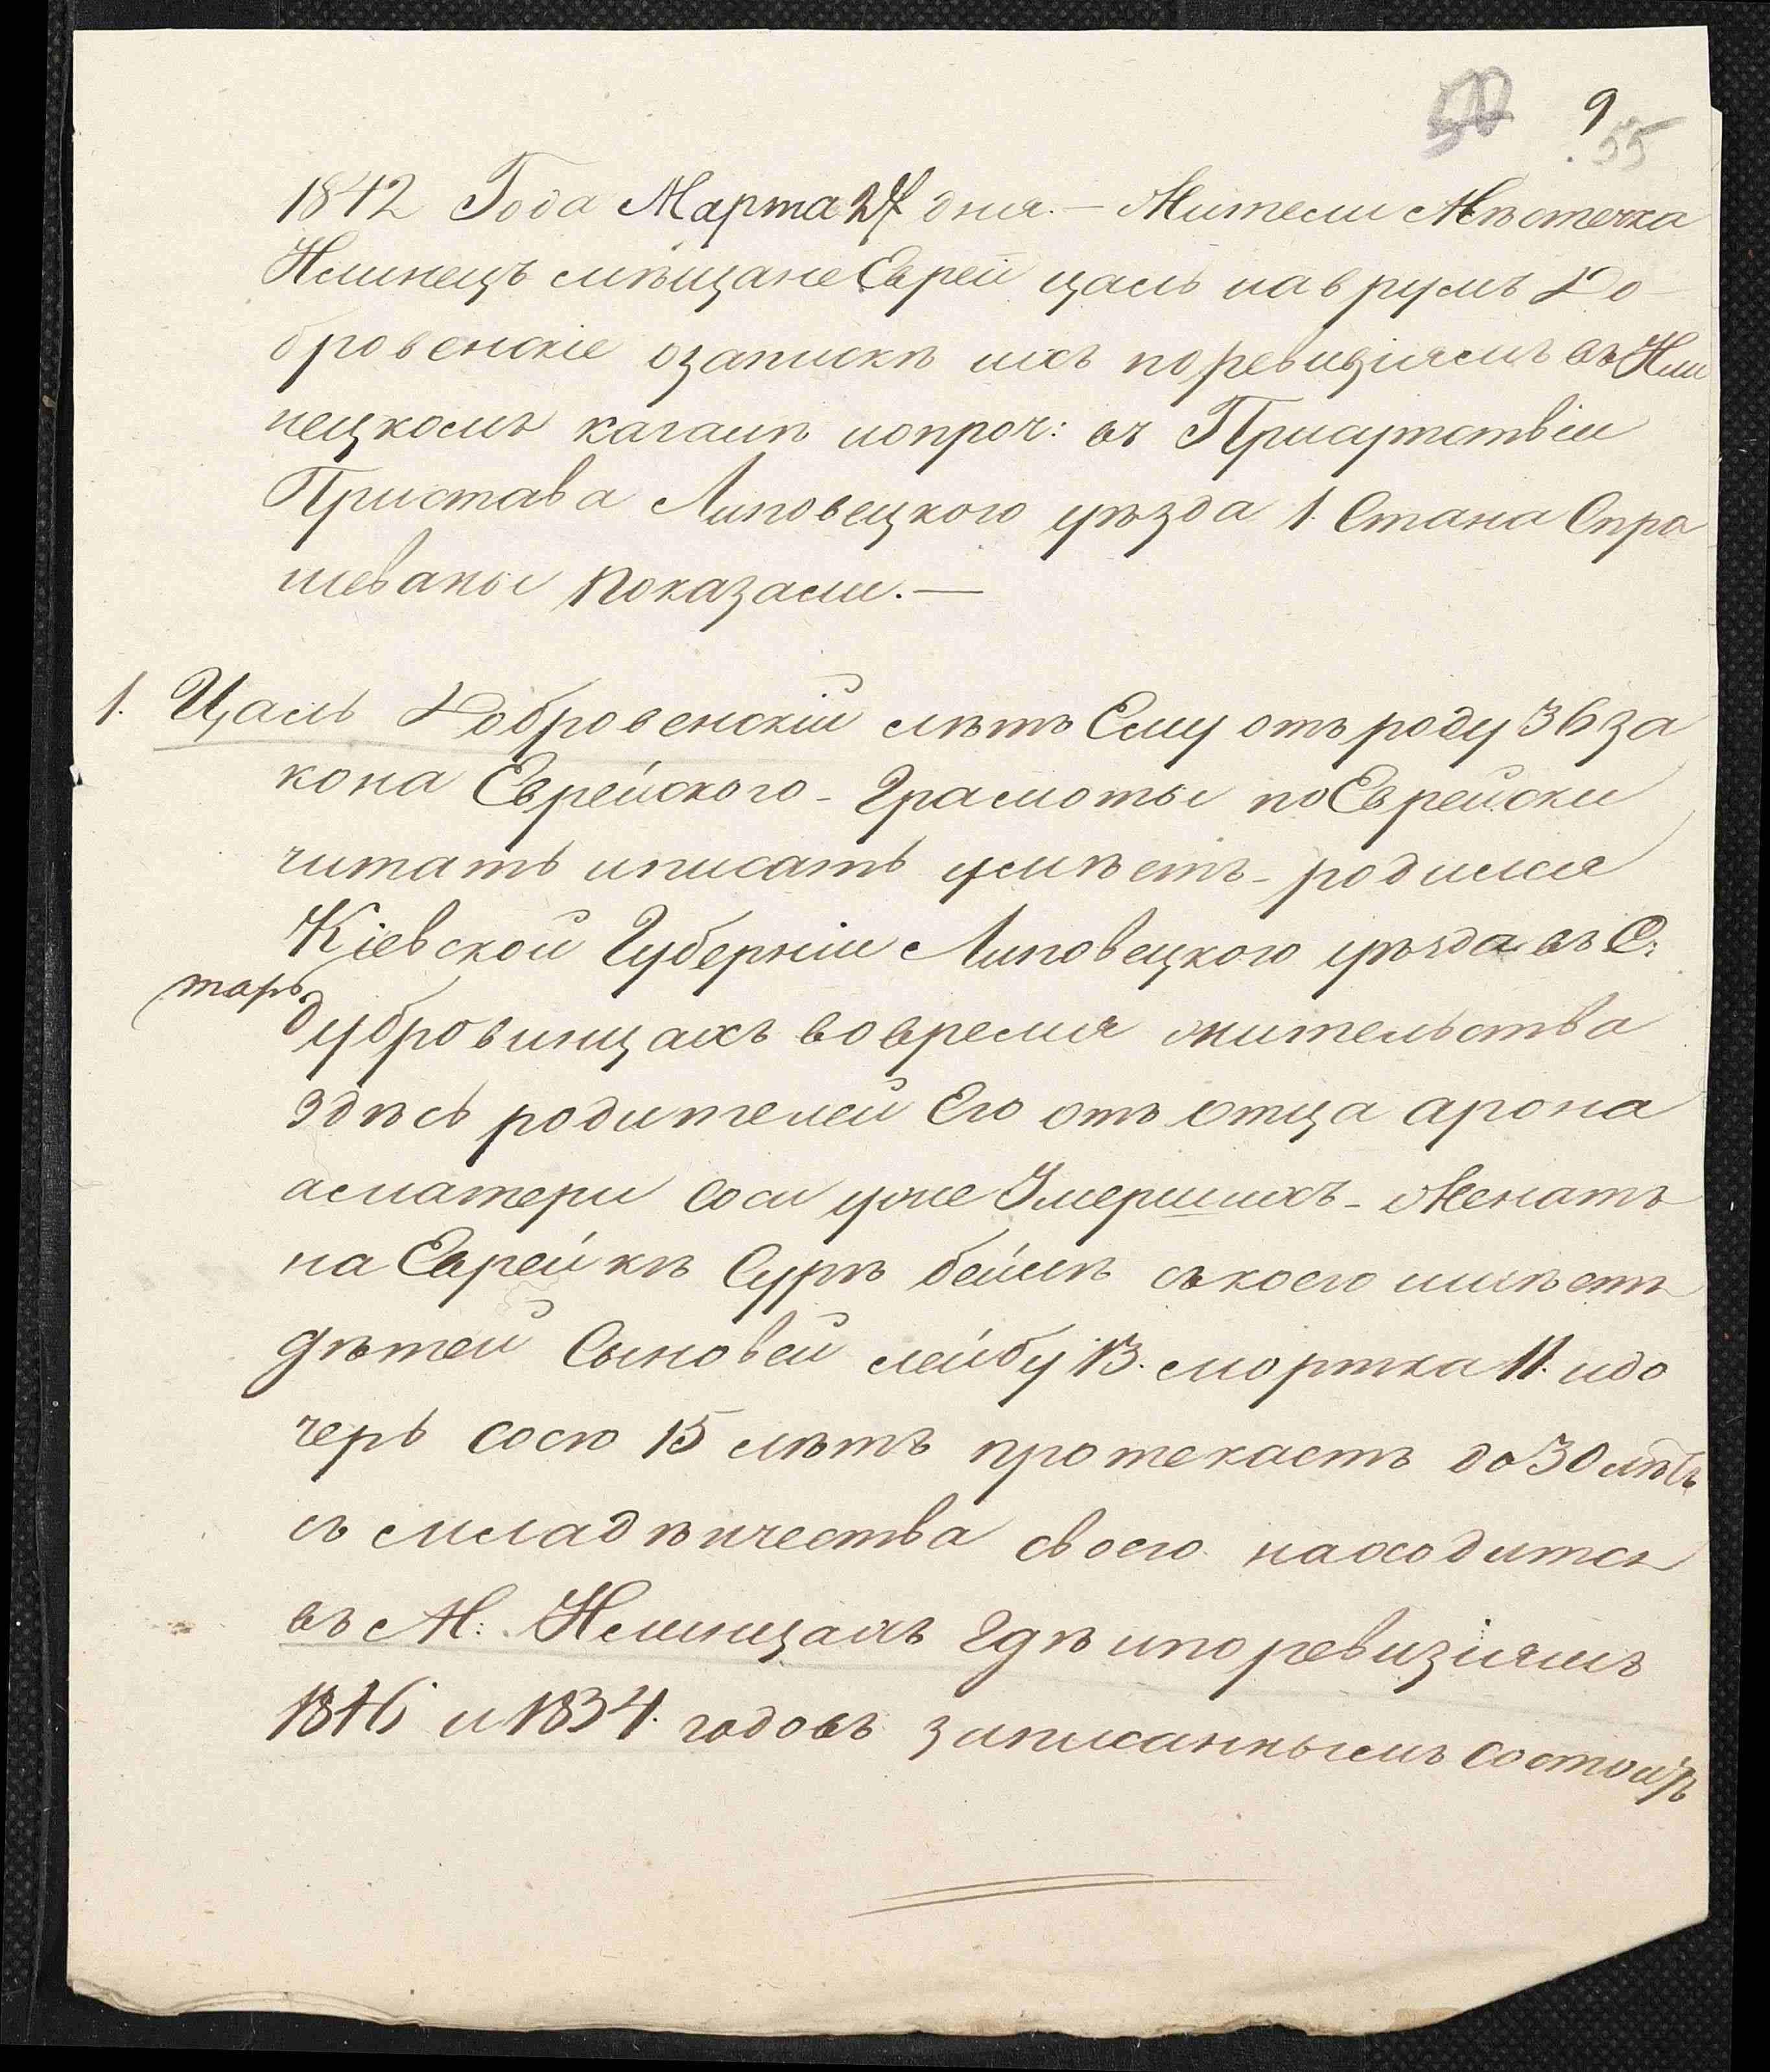 9
55
1842 Года Марта 2 дня. — Жители Мѣстечка
Илинецъ мѣщане Евреи цаль иаврумъ До-
бровенскіе озапискѣ ихъ поревизіямъ въИли
нецкомъ кагалѣ ипроч: въ Присутствіи
Пристава Липовецкого уѣзда 1. Стана Спра
шеваны показали. —
1. Цаль Добровенскій лѣтъ Ему отъ роду 36 за
кона Еврейского - Грамоты поЕврейски
читать иписать умѣетъ - родился
Кіевской Губерніи Липовецкого уѣзда въ С:
старъ
дубровинцахъ вовремя жительства
здѣсь родителей Его отъ отца арона
аматери соси уже Умершихъ - Женатъ
на Еврейкѣ Сурѣ бейлѣ скоего имѣетъ
дѣтей Сыновей лейбу 13. мортка 11. идо
черь сосю 15 лѣтъ протекаетъ до 30 лѣтъ
съ младѣнчества своего находится
въ М: Илинцахъ гдѣ ипоревизіямъ
1816 и 1834. годовъ записаннымъ состоитъ